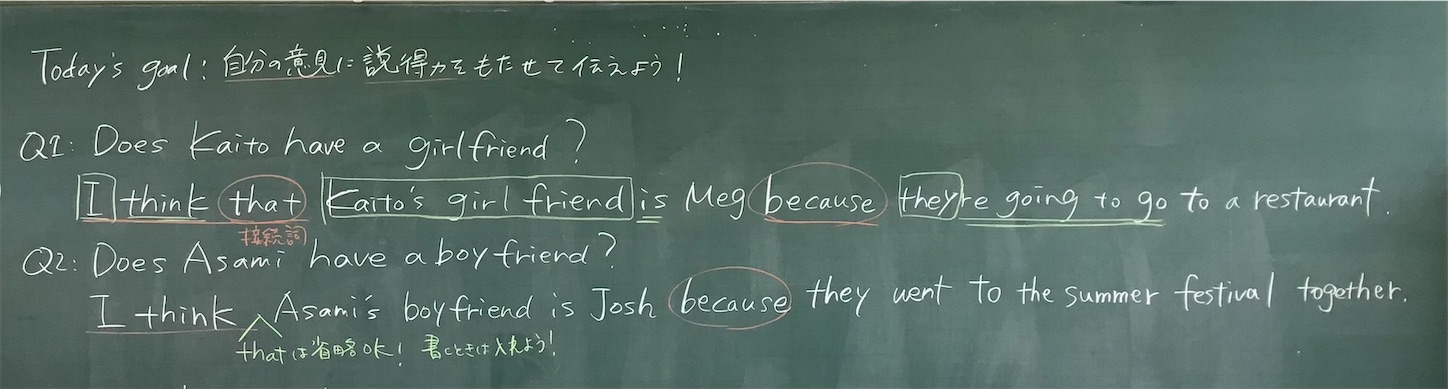 Today's goal: 自分の意見に説得力をもたせて伝えよう!
Q1: Does Kaito have a girlfriend?
I think that Kaito's girl friend is Meg because they're going to go to a restaurant.
接続詞
Q2: Does Asami have a boyfriend?
I think Asami's boyfriend is Josh because they went to the summer festival together.
thatは省略OK! 書くときは入れよう!